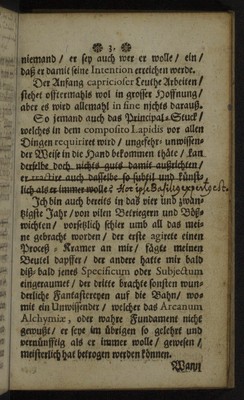 ❀ 3. ❀
niemand / er sey auch wer er wolle / ein /
daß er damit seine Intention erreichen werde.
Der Anfang capricioser Leuthe Arbeiten /
stehet offtermahls wol in grosser Hoffnung /
aber es wird allemahl in fine nichts darauß.
So jemand auch das Principal-Stuck /
welches in dem composito Lapidis vor allen
Dingen requiriret wird / ungefehr- unwissen-
der Weise in die Hand bekommen thäte / kan
derselbe doch nichts guts damit außrichten /
er tractire auch dasselbe so subtil und künst-
lich als er immer wolle: Hoc ipse
Ich bin auch bereits in das vier und zwan-
tzigste Jahr / von vilen Betriegern und Böß-
wichten / vorsetzlich schier umb all das mei-
ne gebracht worden / der erste agirete einen
Proceß-Kramer an mir / fägte meinen
Beutel dapffer / der andere hatte mir bald
diß- bald jenes Specificum oder Subjectum
eingeraumet / der dritte brachte sonsten wun-
derliche Fantastereyen auff die Bahn / wo-
mit ein Unwissender / welcher das Arcanum
Alchymiæ, oder wahre Fundament nicht
gewußt / er seye im übrigen so gelehrt und
vernünfftig als er immer wolle / gewesen /
meisterlich hat betrogen werden können.
Wann